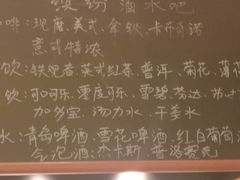 缤纷酒水吧
啡:现磨、美式、拿铁、卡布奇诺
意式特浓
饮:铁观音、英式红茶、普洱、菊花、薄荷
饮:可口可乐、零度可乐、雪碧、芬达、苏打
加多宝、汤力水、干姜水
水:青岛啤酒、雪花啤酒、红白葡萄
气泡酒:杰卡斯 普洛赛克